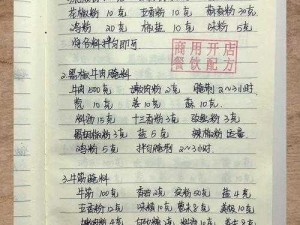 花椒粉 10克 五香粉 10克 茴香粉 30克
鸡粉 20克 椒盐 10克 味粉 5克
将各料拌匀即可
商用开店
餐饮配方
2.黑椒牛肉腌料
牛肉 500克 嫩肉粉 2克 腌制 2~3小时
葱 10克 姜 10克 蒜 10克
料酒 15克 十三香 3克 孜然粉 3克
黑胡椒粉 3克 盐 5克 辣椒粉 适量
鸡粉 5克 拌匀腌制 2~3小时
3.牛筋腌料
牛筋 100克 香油 2克 淀粉 50克 盐 4克
五香粉 12克 味精 10克
嫩肉粉